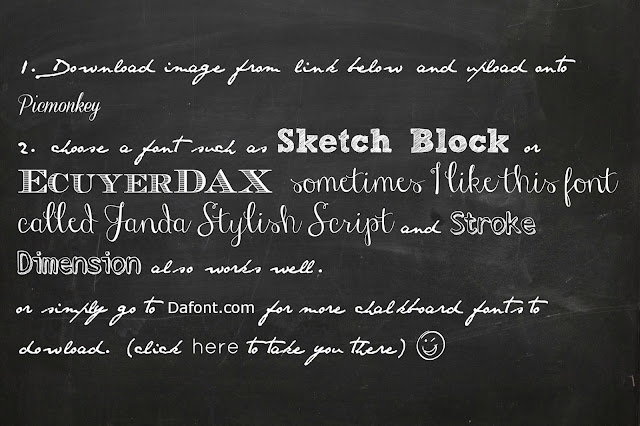 1. Download image from link below and upload onto
Picmonkey
2. choose a font such as Sketch Block or
EcuyerDAX sometimes I like this font
called Janda Stylish Script and Stroke
Dimension also works well.
or simply go to Dafont.com for more chalkboard fonts to
dowload. (click here to take you there)